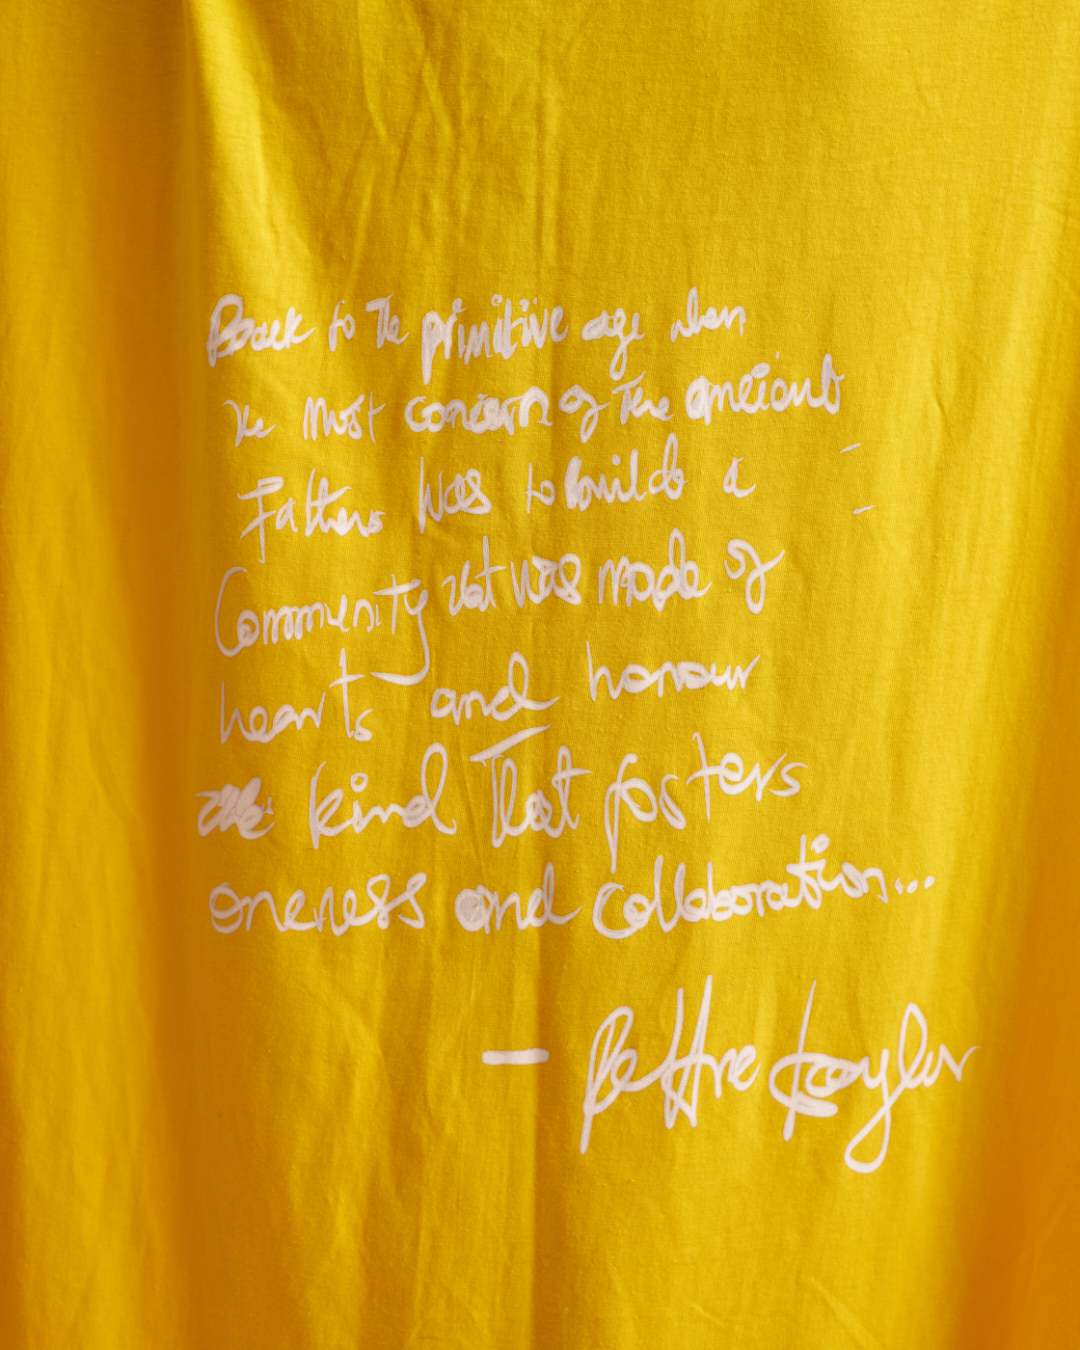 Back to The primitive age when
the most concern of The ancient
Fathers was to build a
Community that was made of
hearts and honour
kind That fosters
oneness and collaboration...
- taylor